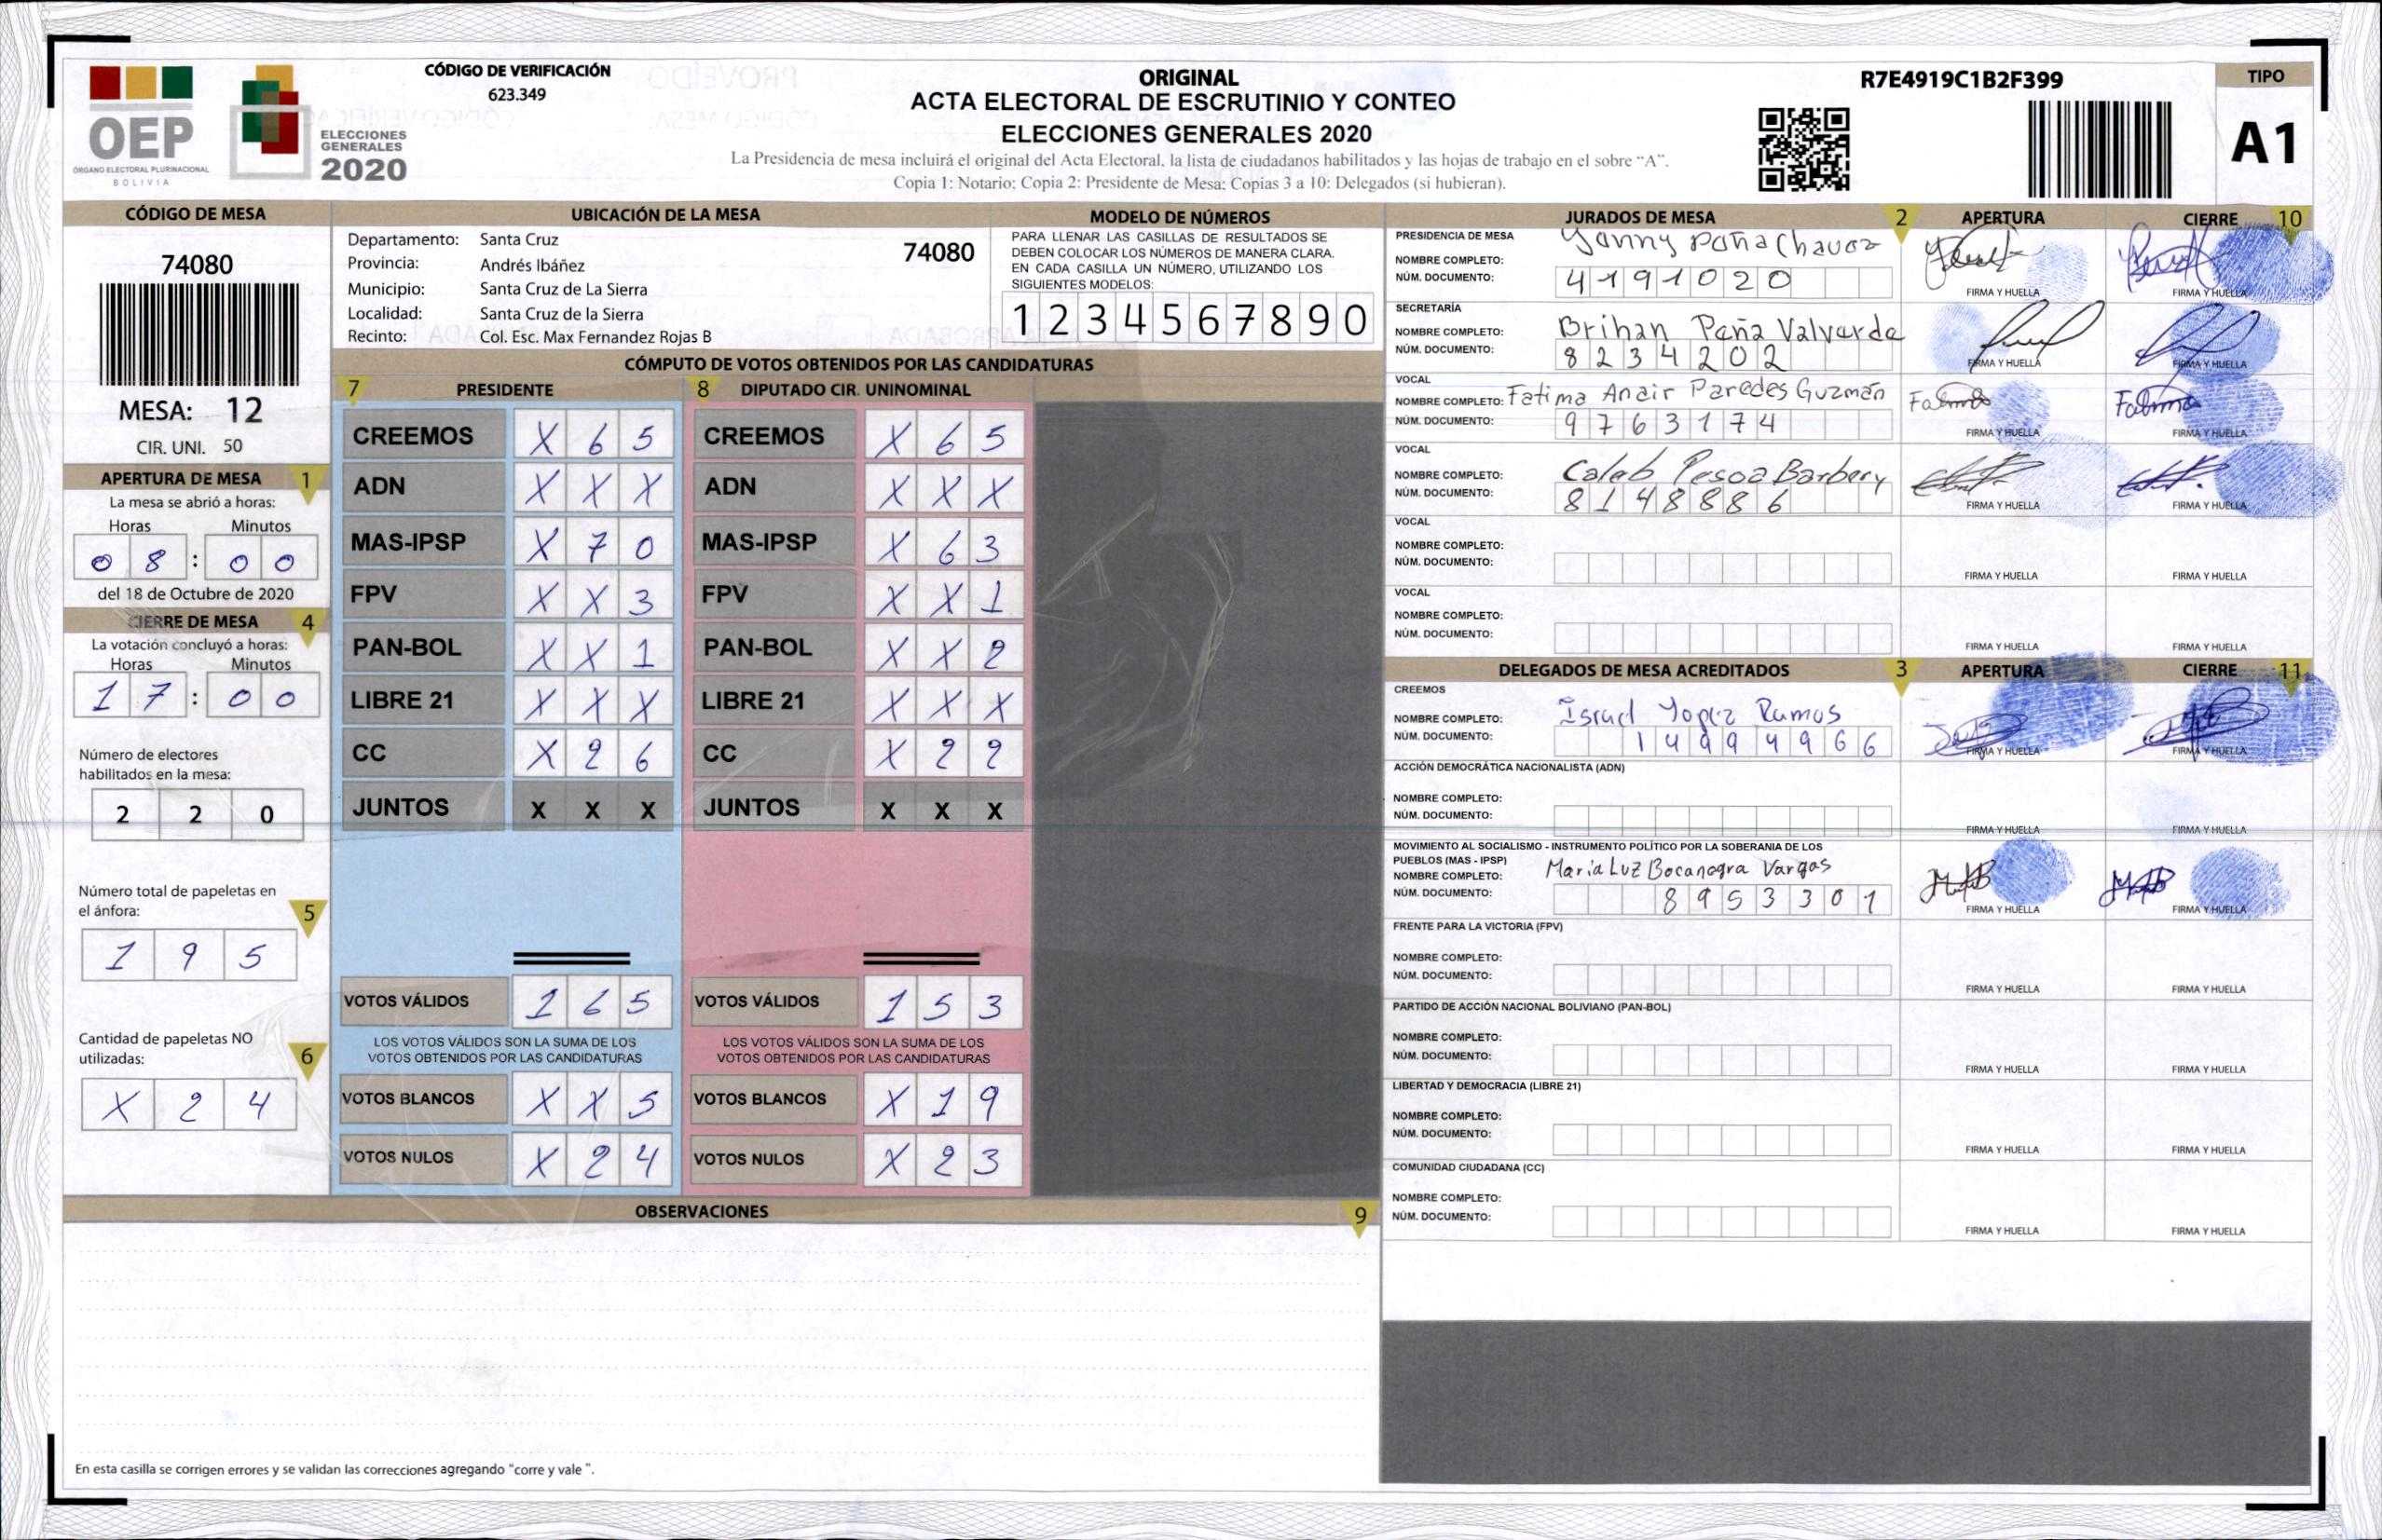 OEP
ÓRGANO ELECTORAL PLURINACIONAL
BOLIVIA
ELECCIONES
GENERALES
2020
CÓDIGO DE VERIFICACIÓN
623.349
ORIGINAL
ACTA ELECTORAL DE ESCRUTINIO Y CONTEO
ELECCIONES GENERALES 2020
La Presidencia de mesa incluirá el original del Acta Electoral, la lista de ciudadanos habilitados y las hojas de trabajo en el sobre "A".
Copia 1: Notario; Copia 2: Presidente de Mesa; Copias 3 a 10: Delegados (si hubieran).
R7E4919C1B2F399
TIPO
A1
CÓDIGO DE MESA
74080
MESA: 12
CIR. UNI. 50
APERTURA DE MESA 1
La mesa se abrió a horas:
Horas Minutos
0 8 : 0 0
del 18 de Octubre de 2020
CIERRE DE MESA 4
La votación concluyó a horas:
Horas Minutos
1 7 : 0 0
Número de electores
habilitados en la mesa:
2 2 0
Número total de papeletas en
el ánfora: 5
1 9 5
Cantidad de papeletas NO
utilizadas: 6
X 2 4
UBICACIÓN DE LA MESA
Departamento: Santa Cruz 74080
Provincia: Andrés Ibáñez
Municipio: Santa Cruz de La Sierra
Localidad: Santa Cruz de la Sierra
Recinto: Col. Esc. Max Fernandez Rojas B
MODELO DE NÚMEROS
PARA LLENAR LAS CASILLAS DE RESULTADOS SE
DEBEN COLOCAR LOS NÚMEROS DE MANERA CLARA.
EN CADA CASILLA UN NÚMERO, UTILIZANDO LOS
SIGUIENTES MODELOS:
1 2 3 4 5 6 7 8 9 0
CÓMPUTO DE VOTOS OBTENIDOS POR LAS CANDIDATURAS
7 PRESIDENTE
CREEMOS X 6 5
ADN X X X
MAS-IPSP X 7 0
FPV X X 3
PAN-BOL X X 1
LIBRE 21 X X X
CC X 2 6
JUNTOS X X X
VOTOS VÁLIDOS 1 6 5
LOS VOTOS VÁLIDOS SON LA SUMA DE LOS
VOTOS OBTENIDOS POR LAS CANDIDATURAS
VOTOS BLANCOS X X 5
VOTOS NULOS X 2 4
8 DIPUTADO CIR. UNINOMINAL
CREEMOS X 6 5
ADN X X X
MAS-IPSP X 6 3
FPV X X 1
PAN-BOL X X 2
LIBRE 21 X X X
CC X 2 2
JUNTOS X X X
VOTOS VÁLIDOS 1 5 3
LOS VOTOS VÁLIDOS SON LA SUMA DE LOS
VOTOS OBTENIDOS POR LAS CANDIDATURAS
VOTOS BLANCOS X 1 9
VOTOS NULOS X 2 3
OBSERVACIONES 9
En esta casilla se corrigen errores y se validan las correcciones agregando "corre y vale ".
JURADOS DE MESA 2 APERTURA CIERRE 10
PRESIDENCIA DE MESA
NOMBRE COMPLETO: Yanny Paña Chavaz
NÚM. DOCUMENTO: 4 1 9 1 0 2 0
FIRMA Y HUELLA FIRMA Y HUELLA
SECRETARÍA
NOMBRE COMPLETO: Brihan Paña Valvarda
NÚM. DOCUMENTO: 8 2 3 4 2 0 2
FIRMA Y HUELLA FIRMA Y HUELLA
VOCAL
NOMBRE COMPLETO: Fatima Anair Paredes Guzmán
NÚM. DOCUMENTO: 9 7 6 3 1 7 4
Fatima Fatima
FIRMA Y HUELLA FIRMA Y HUELLA
VOCAL
NOMBRE COMPLETO: Caleb Pesoa Barbery
NÚM. DOCUMENTO: 8 1 4 8 8 8 6
FIRMA Y HUELLA FIRMA Y HUELLA
VOCAL
NOMBRE COMPLETO:
NÚM. DOCUMENTO:
FIRMA Y HUELLA FIRMA Y HUELLA
VOCAL
NOMBRE COMPLETO:
NÚM. DOCUMENTO:
FIRMA Y HUELLA FIRMA Y HUELLA
DELEGADOS DE MESA ACREDITADOS 3 APERTURA CIERRE 11
CREEMOS
NOMBRE COMPLETO: Israel Yopez Ramos
NÚM. DOCUMENTO: 1 4 9 9 4 9 6 6
FIRMA Y HUELLA FIRMA Y HUELLA
ACCIÓN DEMOCRÁTICA NACIONALISTA (ADN)
NOMBRE COMPLETO:
NÚM. DOCUMENTO:
FIRMA Y HUELLA FIRMA Y HUELLA
MOVIMIENTO AL SOCIALISMO - INSTRUMENTO POLÍTICO POR LA SOBERANIA DE LOS
PUEBLOS (MAS - IPSP)
NOMBRE COMPLETO: Maria Luz Bocanegra Vargas
NÚM. DOCUMENTO: 8 9 5 3 3 0 1
FIRMA Y HUELLA FIRMA Y HUELLA
FRENTE PARA LA VICTORIA (FPV)
NOMBRE COMPLETO:
NÚM. DOCUMENTO:
FIRMA Y HUELLA FIRMA Y HUELLA
PARTIDO DE ACCIÓN NACIONAL BOLIVIANO (PAN-BOL)
NOMBRE COMPLETO:
NÚM. DOCUMENTO:
FIRMA Y HUELLA FIRMA Y HUELLA
LIBERTAD Y DEMOCRACIA (LIBRE 21)
NOMBRE COMPLETO:
NÚM. DOCUMENTO:
FIRMA Y HUELLA FIRMA Y HUELLA
COMUNIDAD CIUDADANA (CC)
NOMBRE COMPLETO:
NÚM. DOCUMENTO:
FIRMA Y HUELLA FIRMA Y HUELLA